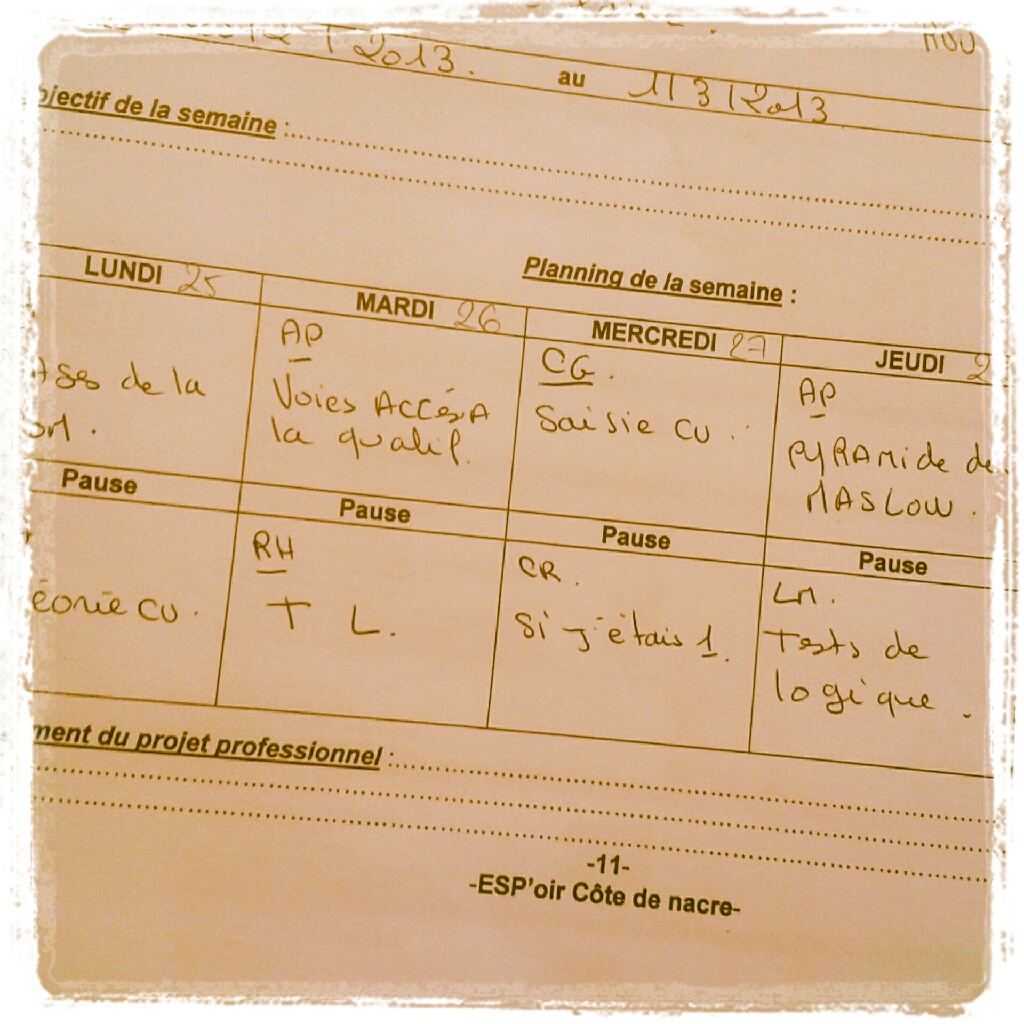 2013. au 1/3/2013
bjectif de la semaine :
Planning de la semaine :
LUNDI 25 MARDI 26 MERCREDI 27 JEUDI 2
de la
AP
Voies ACCés A
la qualif.
CG.
Saisie CV.
AP
PYRAMide de
MASLOW.
Pause Pause Pause Pause
éorie CV.
RH
T L.
CR.
Si j'étais 1.
LM.
Tests de
logique.
ment du projet professionnel :
-11-
-ESP'oir Côte de nacre-